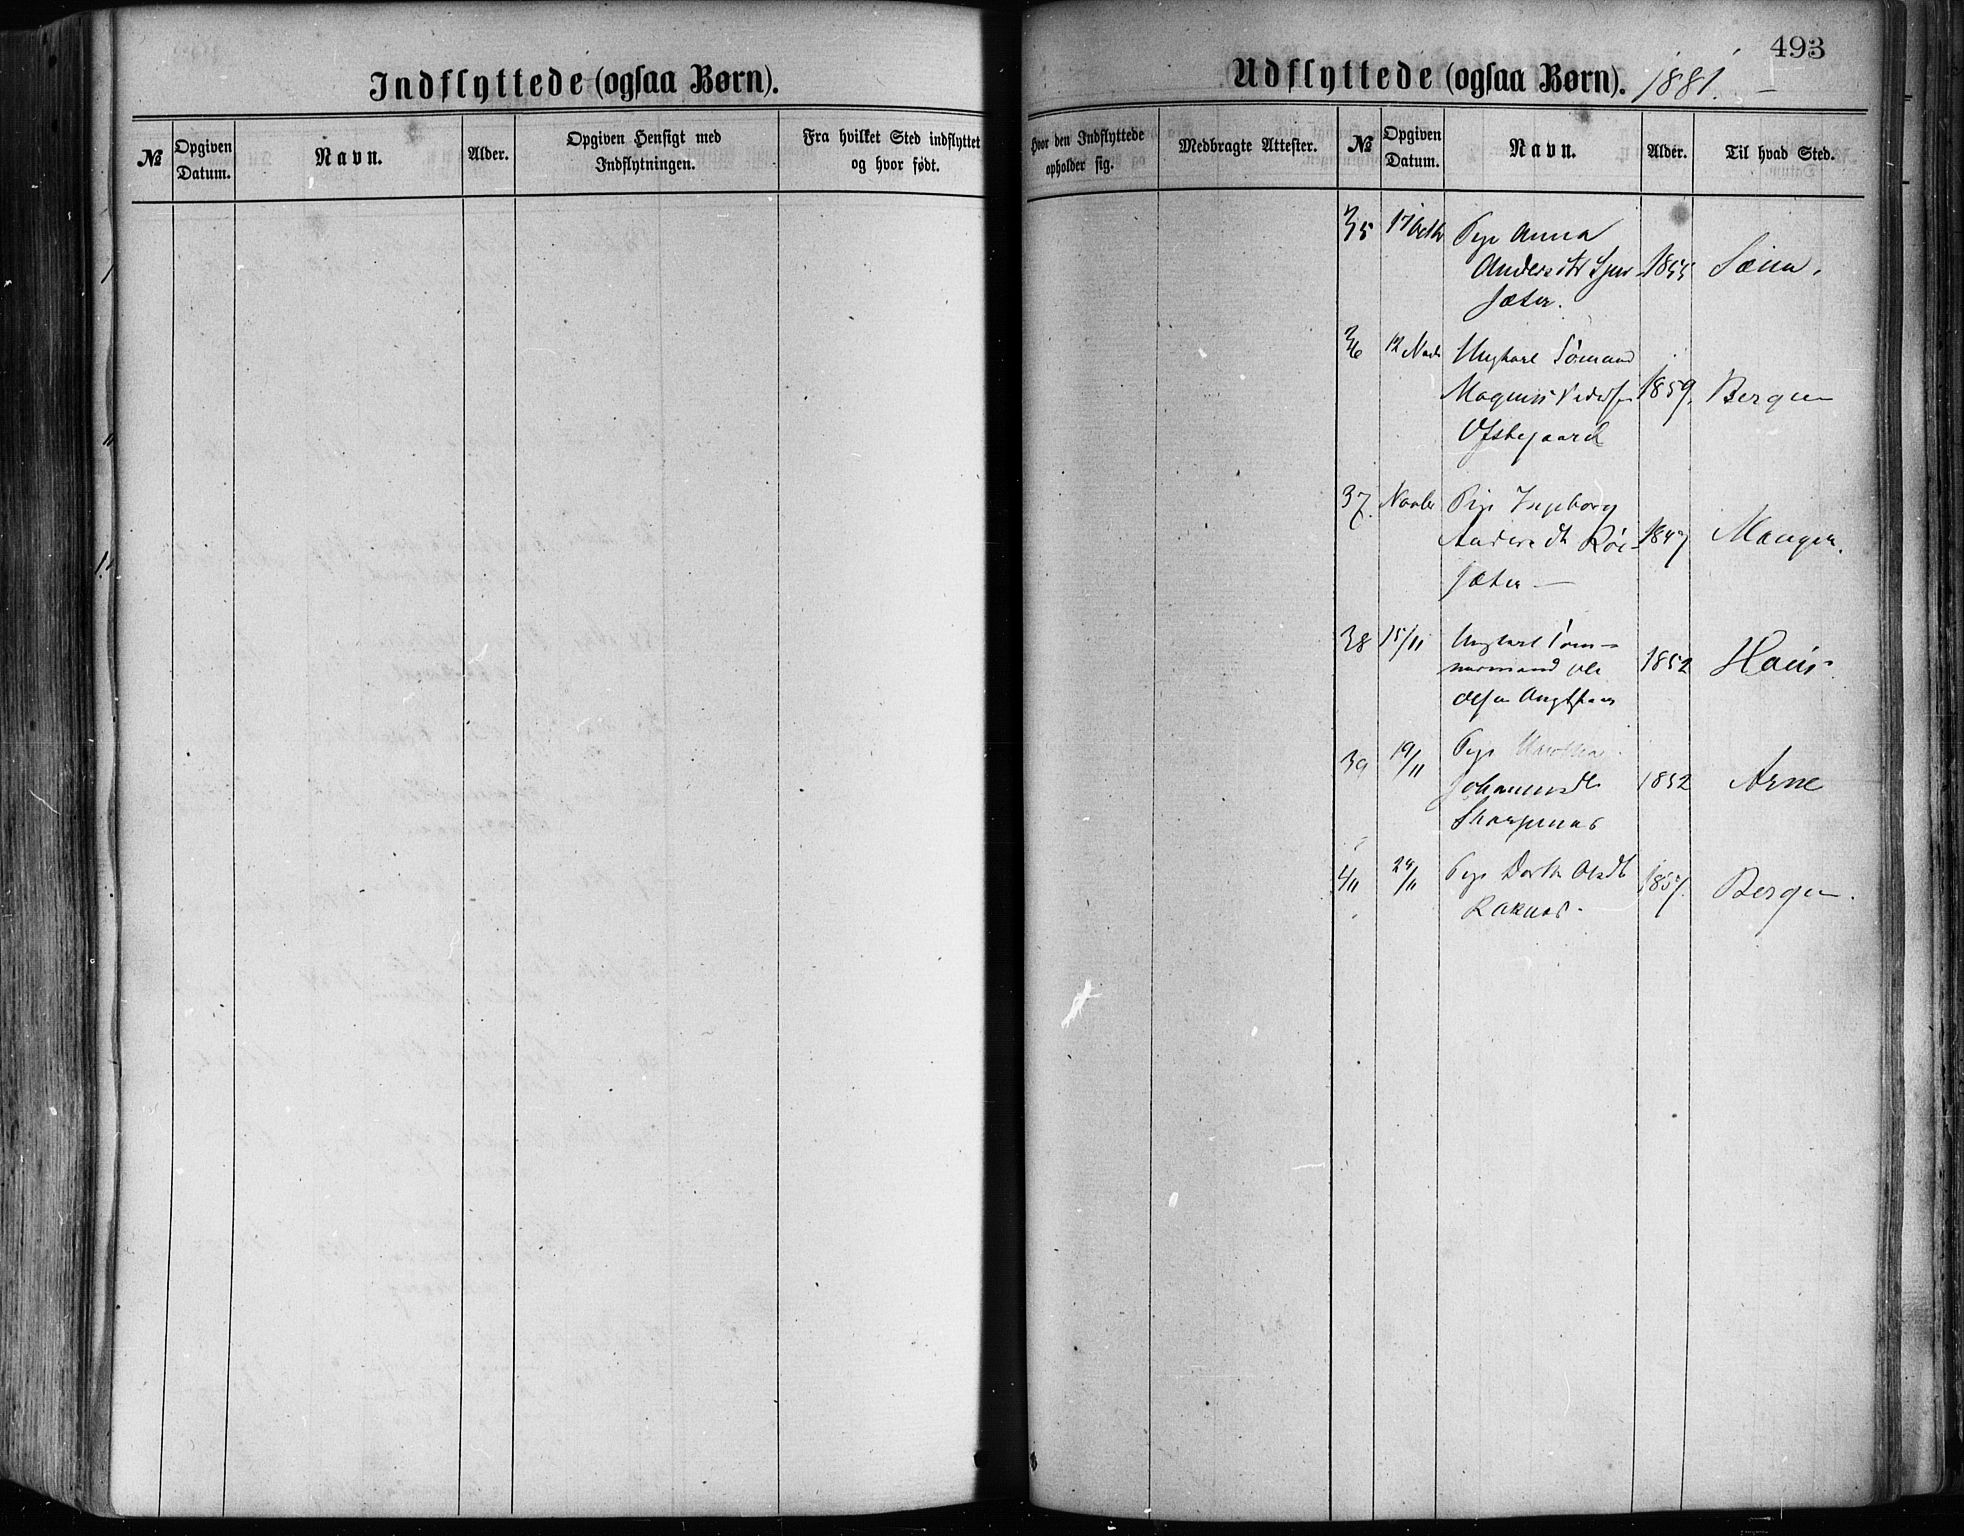 Indflyttede (ogsaa Børn).
№
Opgiven Datum.
Navn.
Alder.
Opgiven Hensigt med Indflytningen.
Fra hvilket Sted indflyttet og hvor født.
493
Udflyttede (ogsaa Børn). 1881.
Hvor den Indflyttede opholder sig.
Medbragte Attester.
№
Opgiven Datum.
Navn.
Alder.
Til hvad Sted.
35 17 Octbr Pige Anna
Andersdtr 1855
sæter.
36 12 Novbr Ungkarl Sömand
Magnus Pedersen 1859. Bergen
Ofstegaard
37. Novbr Pige Ingeborg
Andersdtr 1847 Manger.
sæter
38 15/11 Ungkarl Töm-
mermand Ole 1852 Haus
Olsen
39 19/11 Pige
Johannesdtr 1852 Arne
Skarpenes
40 24/11 Pige Dorthe Olsdtr 1857. Bergen.
Raknes